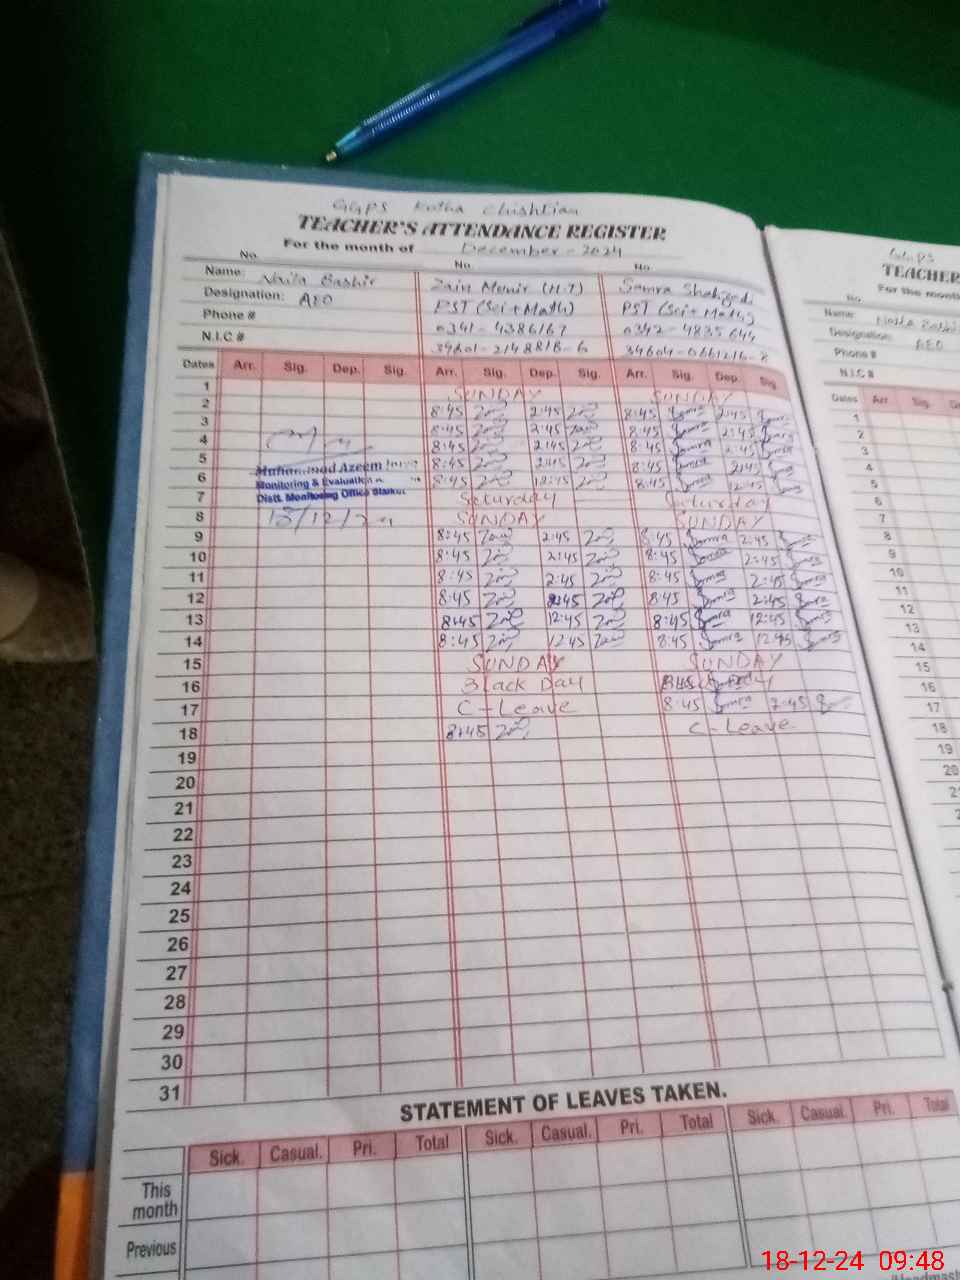 GGPS Kotha Chishtian
TEACHER'S ATTENDANCE REGISTER
For the month of December - 2024
No. No. No.
Name: Naila Bashir Zain Munir (H.T) Samra Shahzadi
Designation: AEO PST (Sci + Math) PST (Sci + Math)
Phone # 0341- 4386167 0342 - 4835644
N.I.C.#
Dates Arr. Sig. Dep. Sig. Arr. Sig. Dep. Sig. Arr. Sig. Dep. Sig.
1 SUNDAY SUNDAY
2 8:45 2:45 8:45 2:45
3 8:45 2:45 8:45 2:45
4 8:45 2:45 8:45 2:45
5 8:45 2:45 8:45 2:45
6 8:45 12:45 8:45 12:45
7 Saturday Saturday
8 SUNDAY SUNDAY
9 8:45 2:45 8:45 2:45
10 8:45 2:45 8:45 2:45
11 8:45 2:45 8:45 2:45
12 8:45 2:45 8:45 2:45
13 8:45 12:45 8:45 12:45
14 8:45 12:45 8:45 12:45
15 SUNDAY SUNDAY
16 Black Day
17 C-Leave 8:45 2:45
18 8:45 C-Leave
19
20
21
22
23
24
25
26
27
28
29
30
31
Muhammad Azeem
Monitoring & Evaluation
Distt. Monitoring Office Sialkot
18/12/24
STATEMENT OF LEAVES TAKEN.
Sick. Casual. Pri. Total Sick. Casual. Pri. Total Sick. Casual. Pri. Total
This
month
Previous
GGPS
TEACHER
For the mont
No.
Name: Naila Bashir
Designation: AEO
Phone #
N.I.C #
Dates Arr. Sig.
1
2
3
4
5
6
7
8
9
10
11
12
13
14
15
16
17
18
19
20
18-12-24 09:48